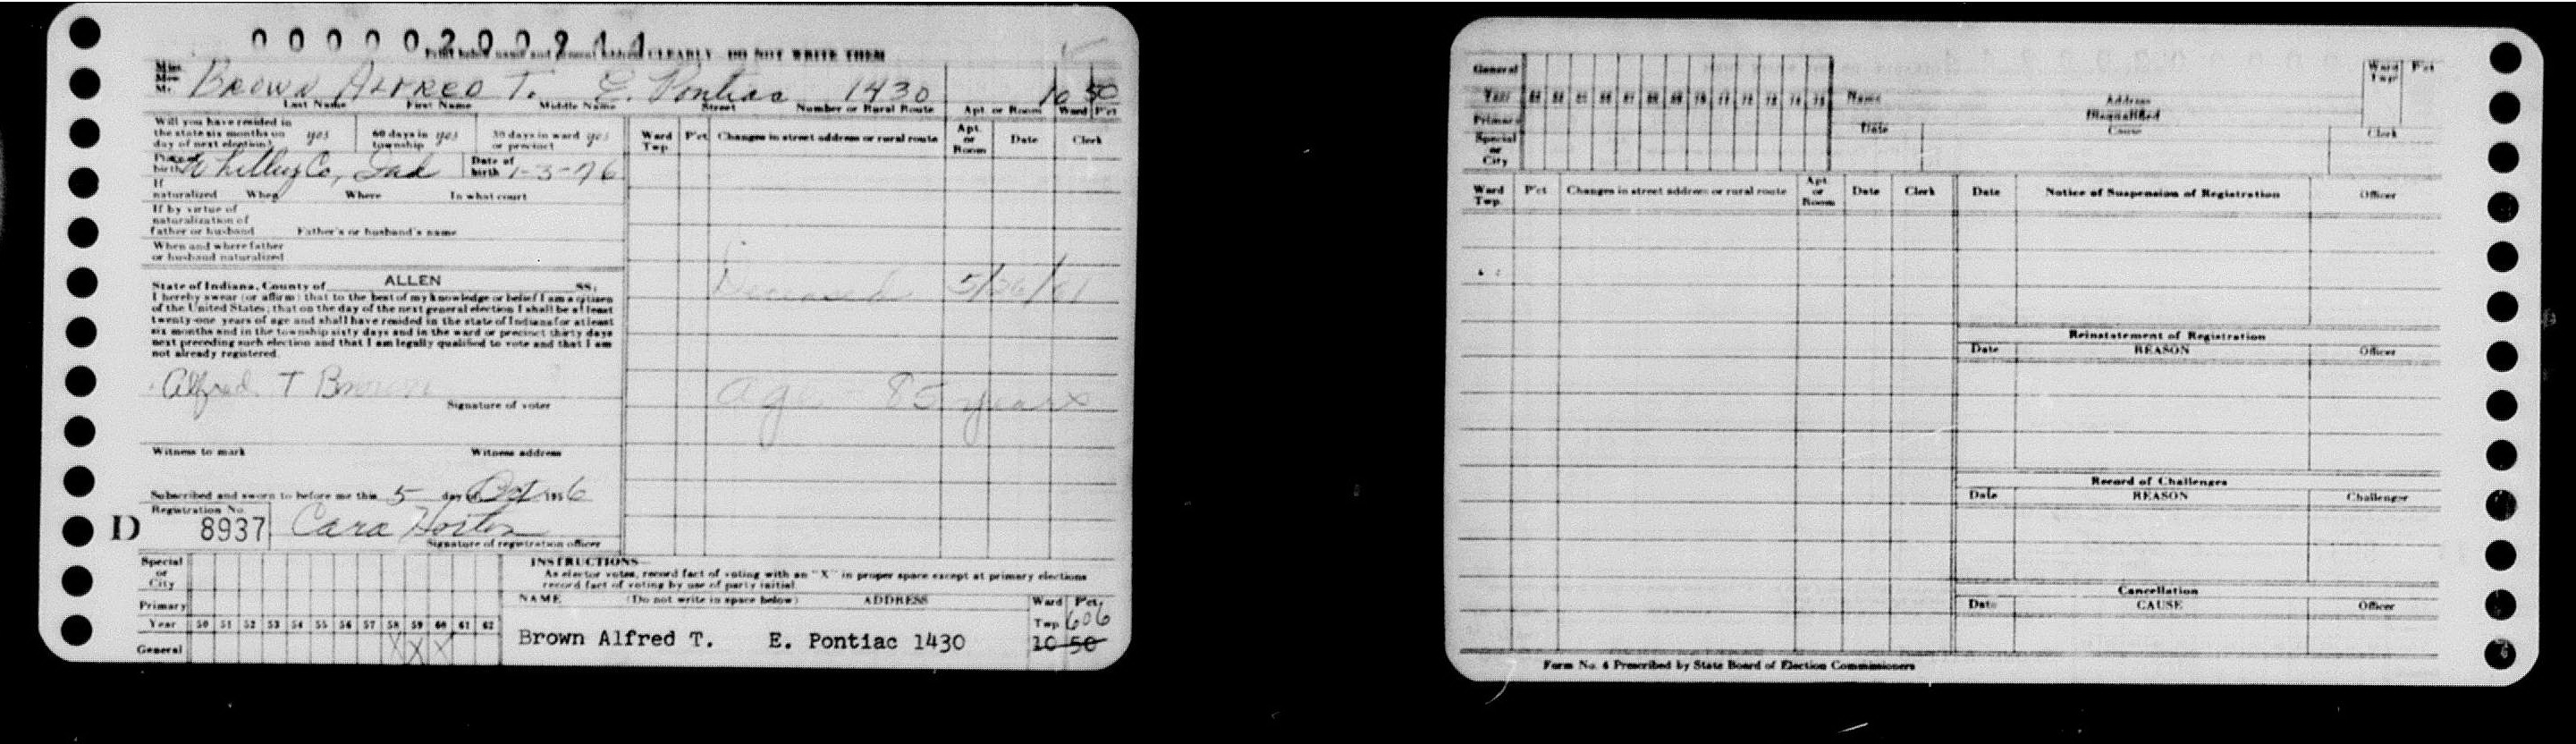 0 0 0 0 0 2 0 0 9 4 4
Print below name and present address CLEARLY DO NOT WRITE THEM
Miss
Mrs.
Mr. BROWN ALFRED T. E. Pontiac 1430 10 50
Last Name First Name Middle Name Street Number or Rural Route Apt. or Room Ward P'ct
Will you have resided in the state six months on day of next election? yes 60 days in township yes 30 days in ward or precinct yes
Place of birth Whitley Co, Ind Date of birth 1-3-76
If naturalized When Where In what court
If by virtue of naturalization of father or husband Father's or husband's name
When and where father or husband naturalized
State of Indiana, County of ALLEN SS:
I hereby swear (or affirm) that to the best of my knowledge or belief I am a citizen
of the United States; that on the day of the next general election I shall be at least
twenty-one years of age and shall have resided in the state of Indiana for at least
six months and in the township sixty days and in the ward or precinct thirty days
next preceding such election and that I am legally qualified to vote and that I am
not already registered.
Alfred T Brown
Signature of voter
Witness to mark Witness address
Subscribed and sworn to before me this 5 day of Oct 1956
D Registration No. 8937 Cara
Signature of registration officer
Ward Twp. P'ct Changes in street address or rural route Apt. or Room Date Clerk
Deceased 5/26/61
age - 85 years
Special or City
Primary
Year 50 51 52 53 54 55 56 57 58 59 60 61 62
General X X X
INSTRUCTIONS—
As elector votes, record fact of voting with an "X" in proper space except at primary elections
record fact of voting by use of party initial.
NAME (Do not write in space below) ADDRESS Ward Twp. P'ct.
606
Brown Alfred T. E. Pontiac 1430 10 50
General
Year 63 64 65 66 67 68 69 70 71 72 73 74 75
Primary
Special or City
Name Address Ward Twp. P'ct
Disqualified
Date Cause Clerk
Ward Twp. P'ct Changes in street address or rural route Apt. or Room Date Clerk
Date Notice of Suspension of Registration Officer
Reinstatement of Registration
Date REASON Officer
Record of Challenges
Date REASON Challenger
Cancellation
Date CAUSE Officer
Form No. 4 Prescribed by State Board of Election Commissioners